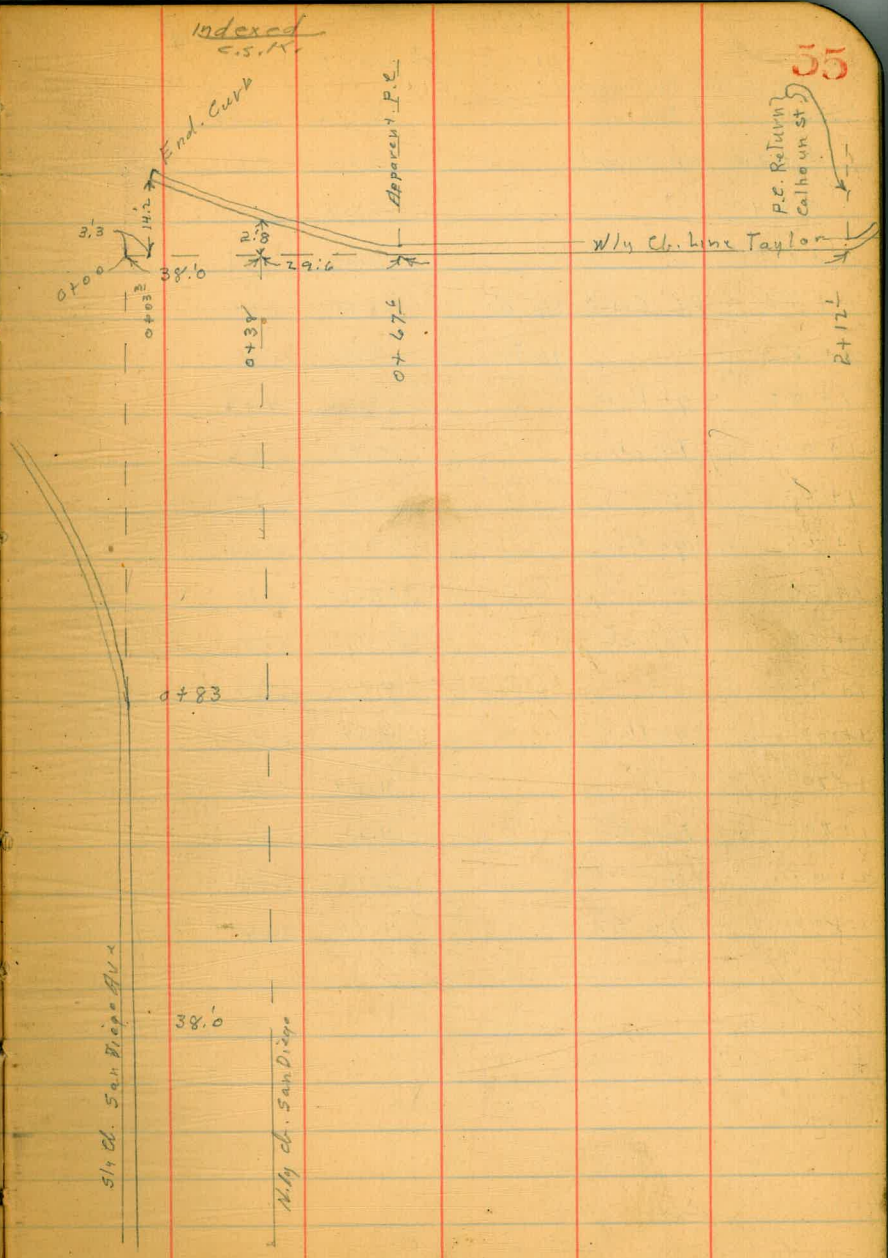 Indexed
C.S.K.
55
End. Curb
Apparent P.C.
P.C. Return
Calhoun St.
3.3
14.2
2.8
W'ly Cb. Line Taylor
0+00
38.0
29.6
0+03³
0+38
0+67⁶
2+12¹
0+83
38.0
S'ly Cb. San Diego Ave
N.ly Cb. San Diego